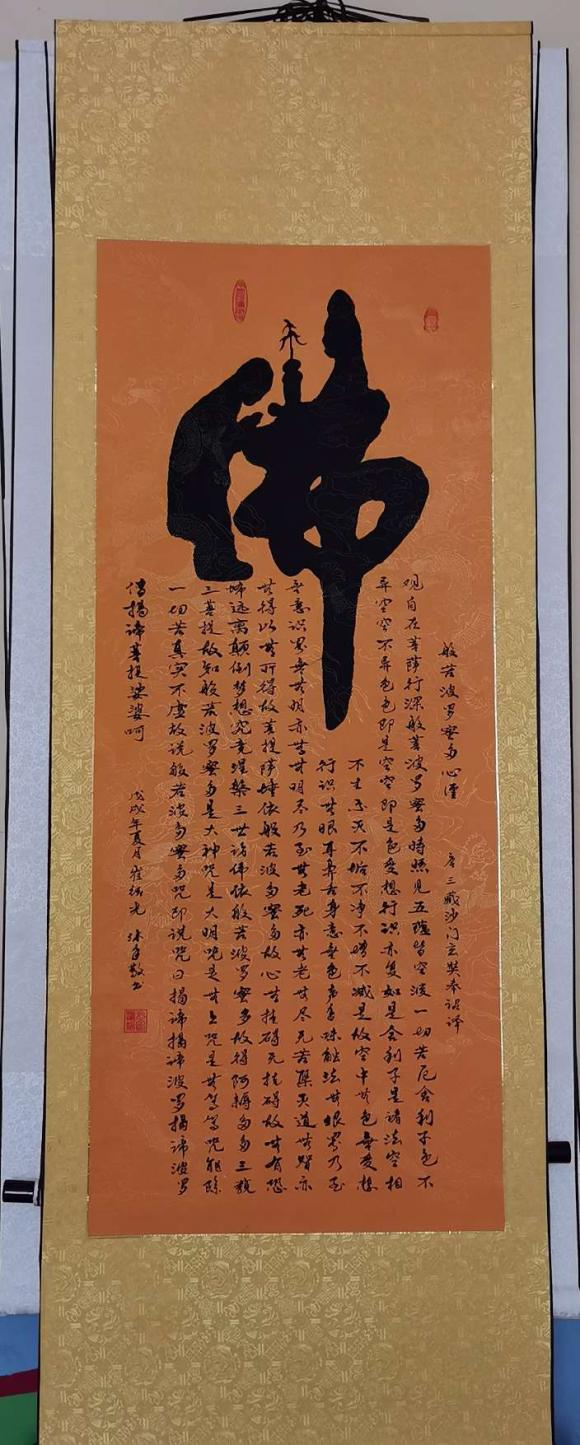 佛
般若波罗蜜多心经
唐三藏沙门玄奘奉诏译
观自在菩萨行深般若波罗蜜多时照见五蕴皆空渡一切苦厄舍利子色不
异空空不异色色即是空空即是色受想行识亦复如是舍利子是诸法空相
不生不灭不垢不净不增不减是故空中无色无受想
行识无眼耳鼻舌身意无色声香味触法无眼界乃至
无意识界无无明亦无无明尽乃至无老死亦无老死尽无苦集灭道无智亦
无得以无所得故菩提萨埵依般若波罗蜜多故心无挂碍无挂碍故无有恐
怖远离颠倒梦想究竟涅槃三世诸佛依般若波罗蜜多故得阿耨多罗三藐
三菩提故知般若波罗蜜多是大神咒是大明咒是无上咒是无等等咒能除
一切苦真实不虚故说般若波罗蜜多咒即说咒曰揭谛揭谛波罗揭谛波罗
僧揭谛菩提娑婆呵
戊戌年夏月崔